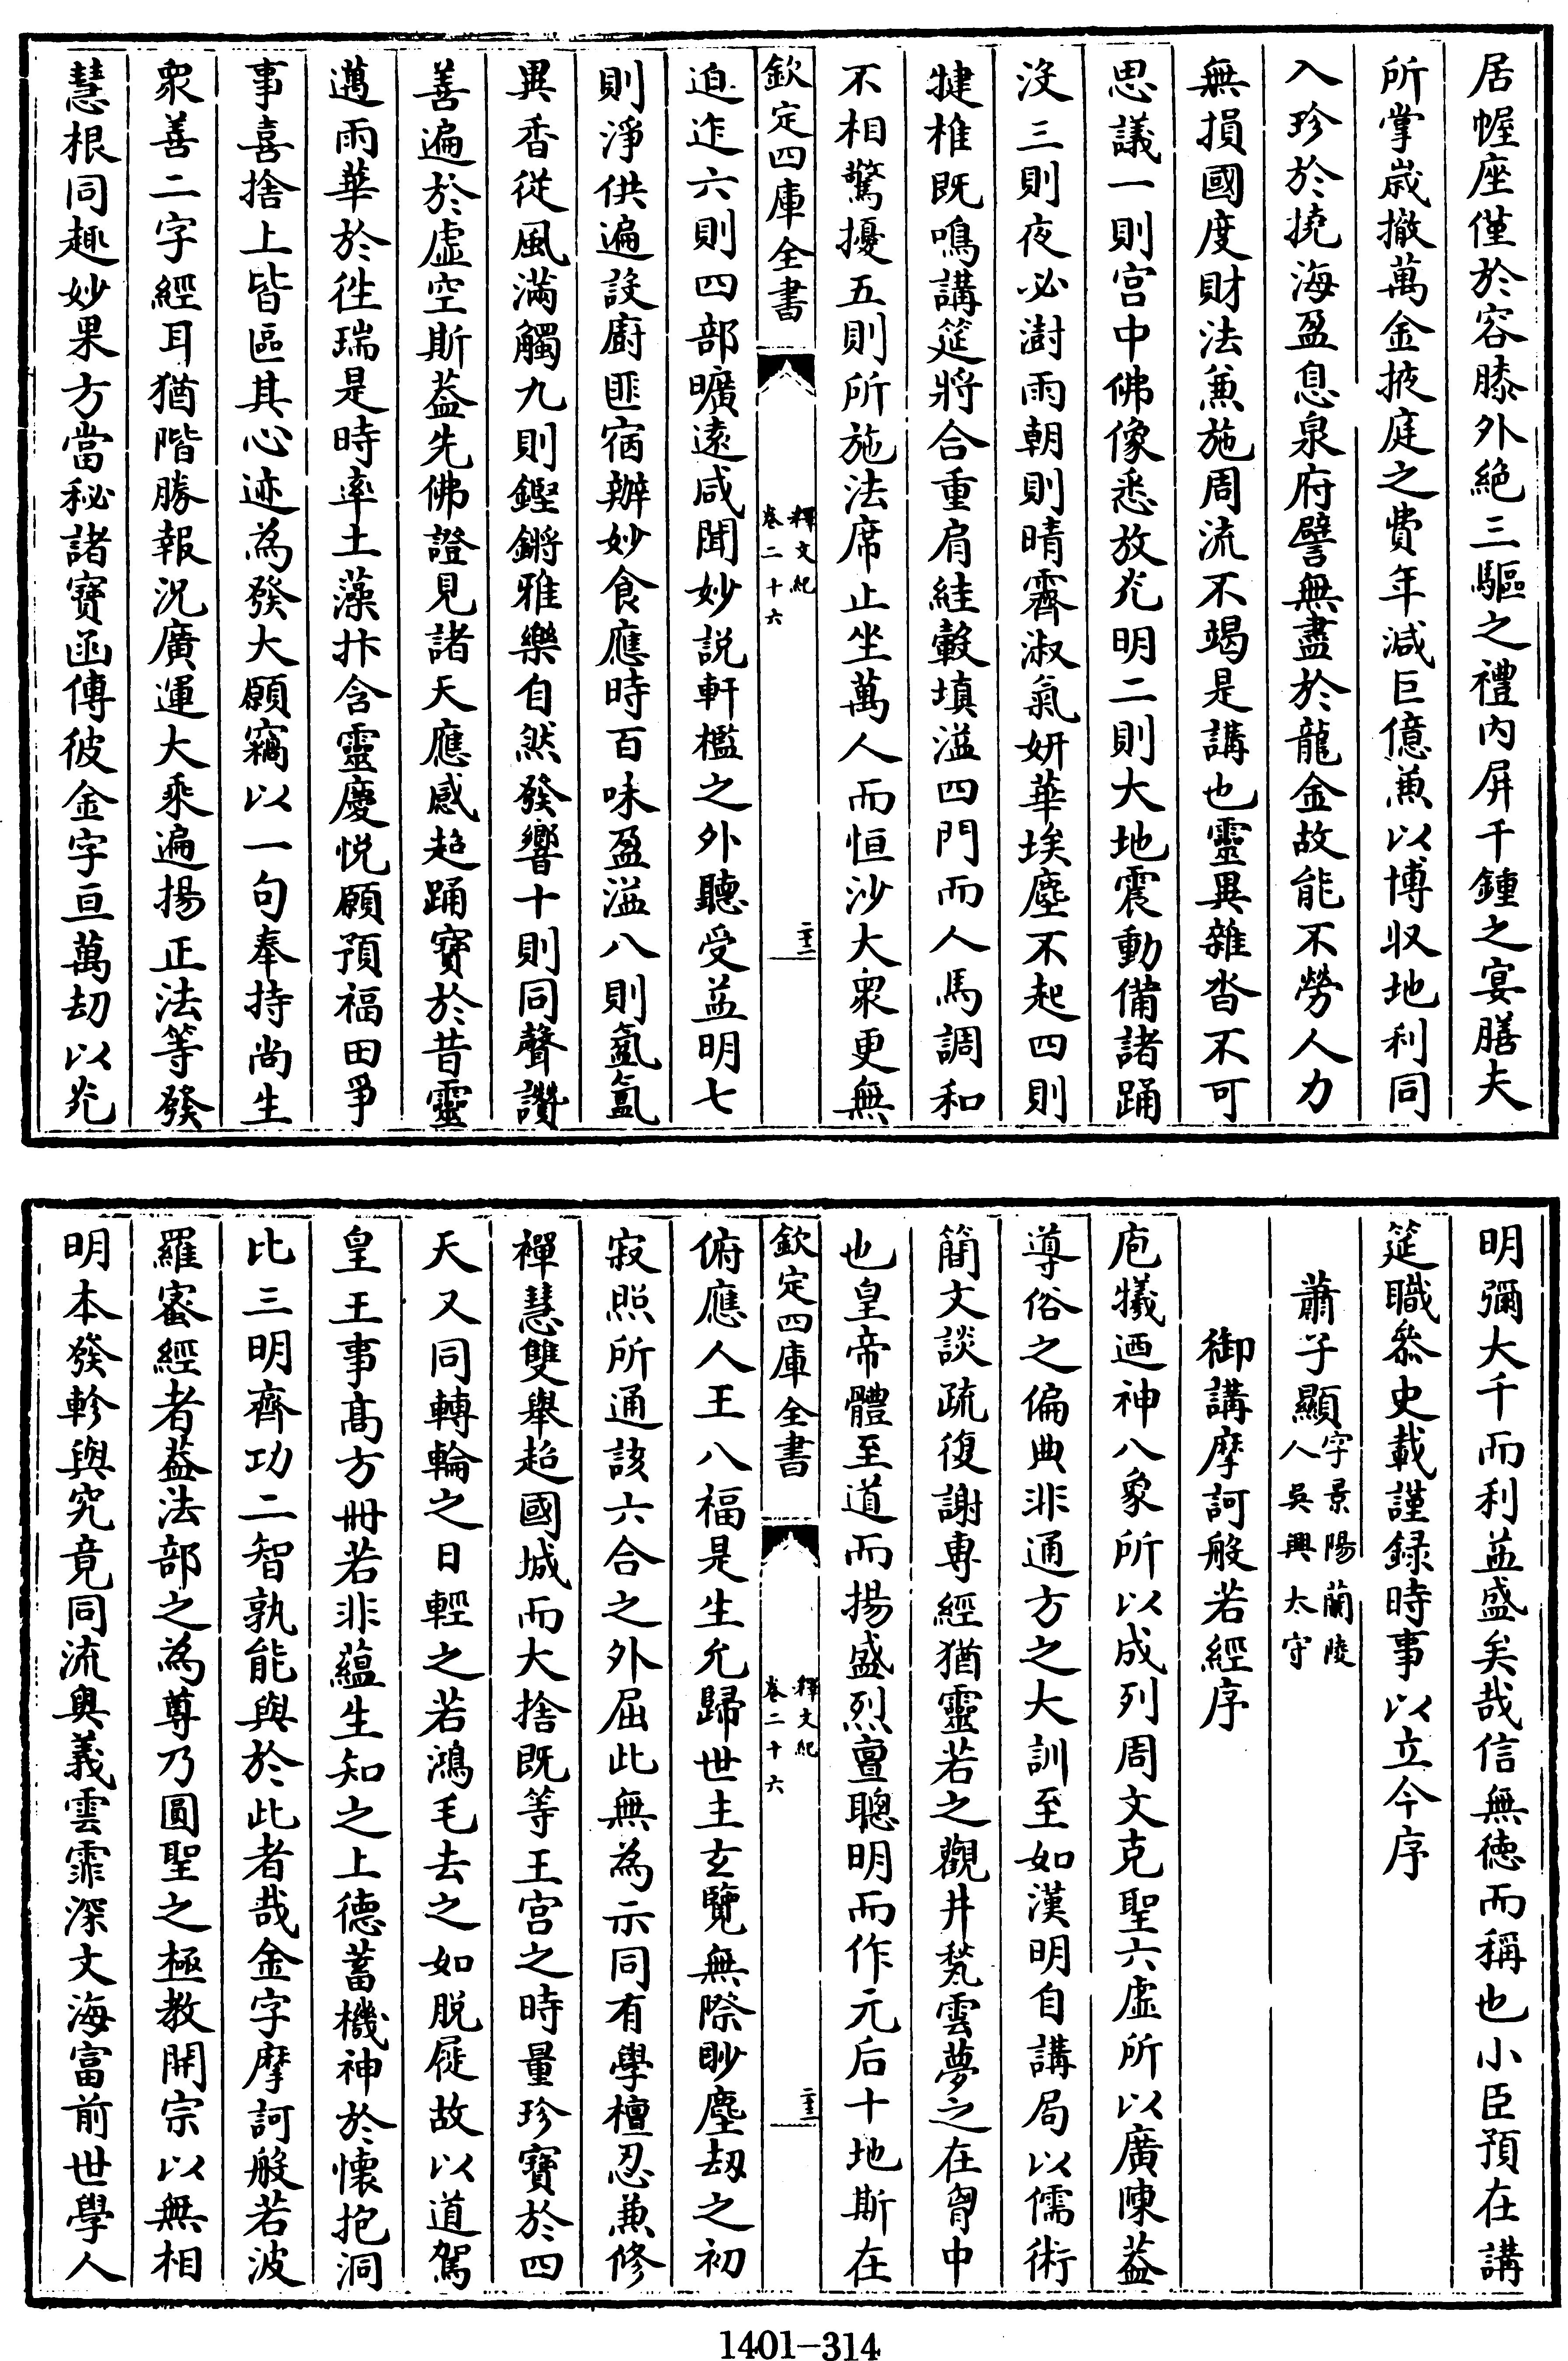 居幄座僅於容膝外絶三驅之禮内屏千鍾之宴膳夫
所掌嵗撤萬金掖庭之費年減巨億兼以博収地利同
入珍於撓海盈息泉府譬無盡於龍金故能不勞人力
無損國度財法兼施周流不竭是講也靈異雜沓不可
思議一則宫中佛像悉放光明二則大地震動備諸踊
沒三則夜必澍雨朝則晴霽淑氣妍華埃塵不起四則
犍椎既鳴講筵將合重肩絓轂填溢四門而人馬調和
不相驚擾五則所施法席止坐萬人而恒沙大衆更無
欽定四庫全書
釋文紀
卷二十六
二十二
迫迮六則四部曠逺咸聞妙説軒檻之外聽受益明七
則淨供遍設廚匪宿辦妙食應時百味盈溢八則氳氳
異香從風滿觸九則鏗鏘雅樂自然發響十則同聲讚
善遍於虚空斯葢先佛證見諸天應感超踊寳於昔靈
邁雨華於徃瑞是時率土藻抃含靈慶悦願預福田爭
事喜捨上皆區其心迹為發大願竊以一句奉持尚生
衆善二字經耳猶階勝報況廣運大乘遍揚正法等發
慧根同趣妙果方當秘諸寳函傳彼金字亘萬刧以光
明彌大千而利益盛矣哉信無徳而稱也小臣預在講
筵職叅史載謹録時事以立今序
蕭子顯字景陽蘭陵人吳興太守
御講摩訶般若經序
庖犧迺神八象所以成列周文克聖六虚所以廣陳葢
導俗之偏典非通方之大訓至如漢明自講局以儒術
簡文談疏復謝專經猶靈若之觀井甃雲夢之在胷中
也皇帝體至道而揚盛烈亶聰明而作元后十地斯在
欽定四庫全書
釋文紀
卷二十六
二十三
俯應人王八福是生允歸世主玄覽無際眇塵刼之初
寂照所通該六合之外屈此無為示同有學檀忍兼修
禪慧雙舉超國城而大捨既等王宫之時量珍寳於四
天又同轉輪之日輕之若鴻毛去之如脱屣故以道駕
皇王事髙方冊若非蘊生知之上德蓄機神於懷抱洞
比三明齊功二智孰能與於此者哉金字摩訶般若波
羅蜜經者葢法部之為尊乃圓聖之極教開宗以無相
明本發軫與究竟同流奥義雲霏深文海富前世學人
1401−314